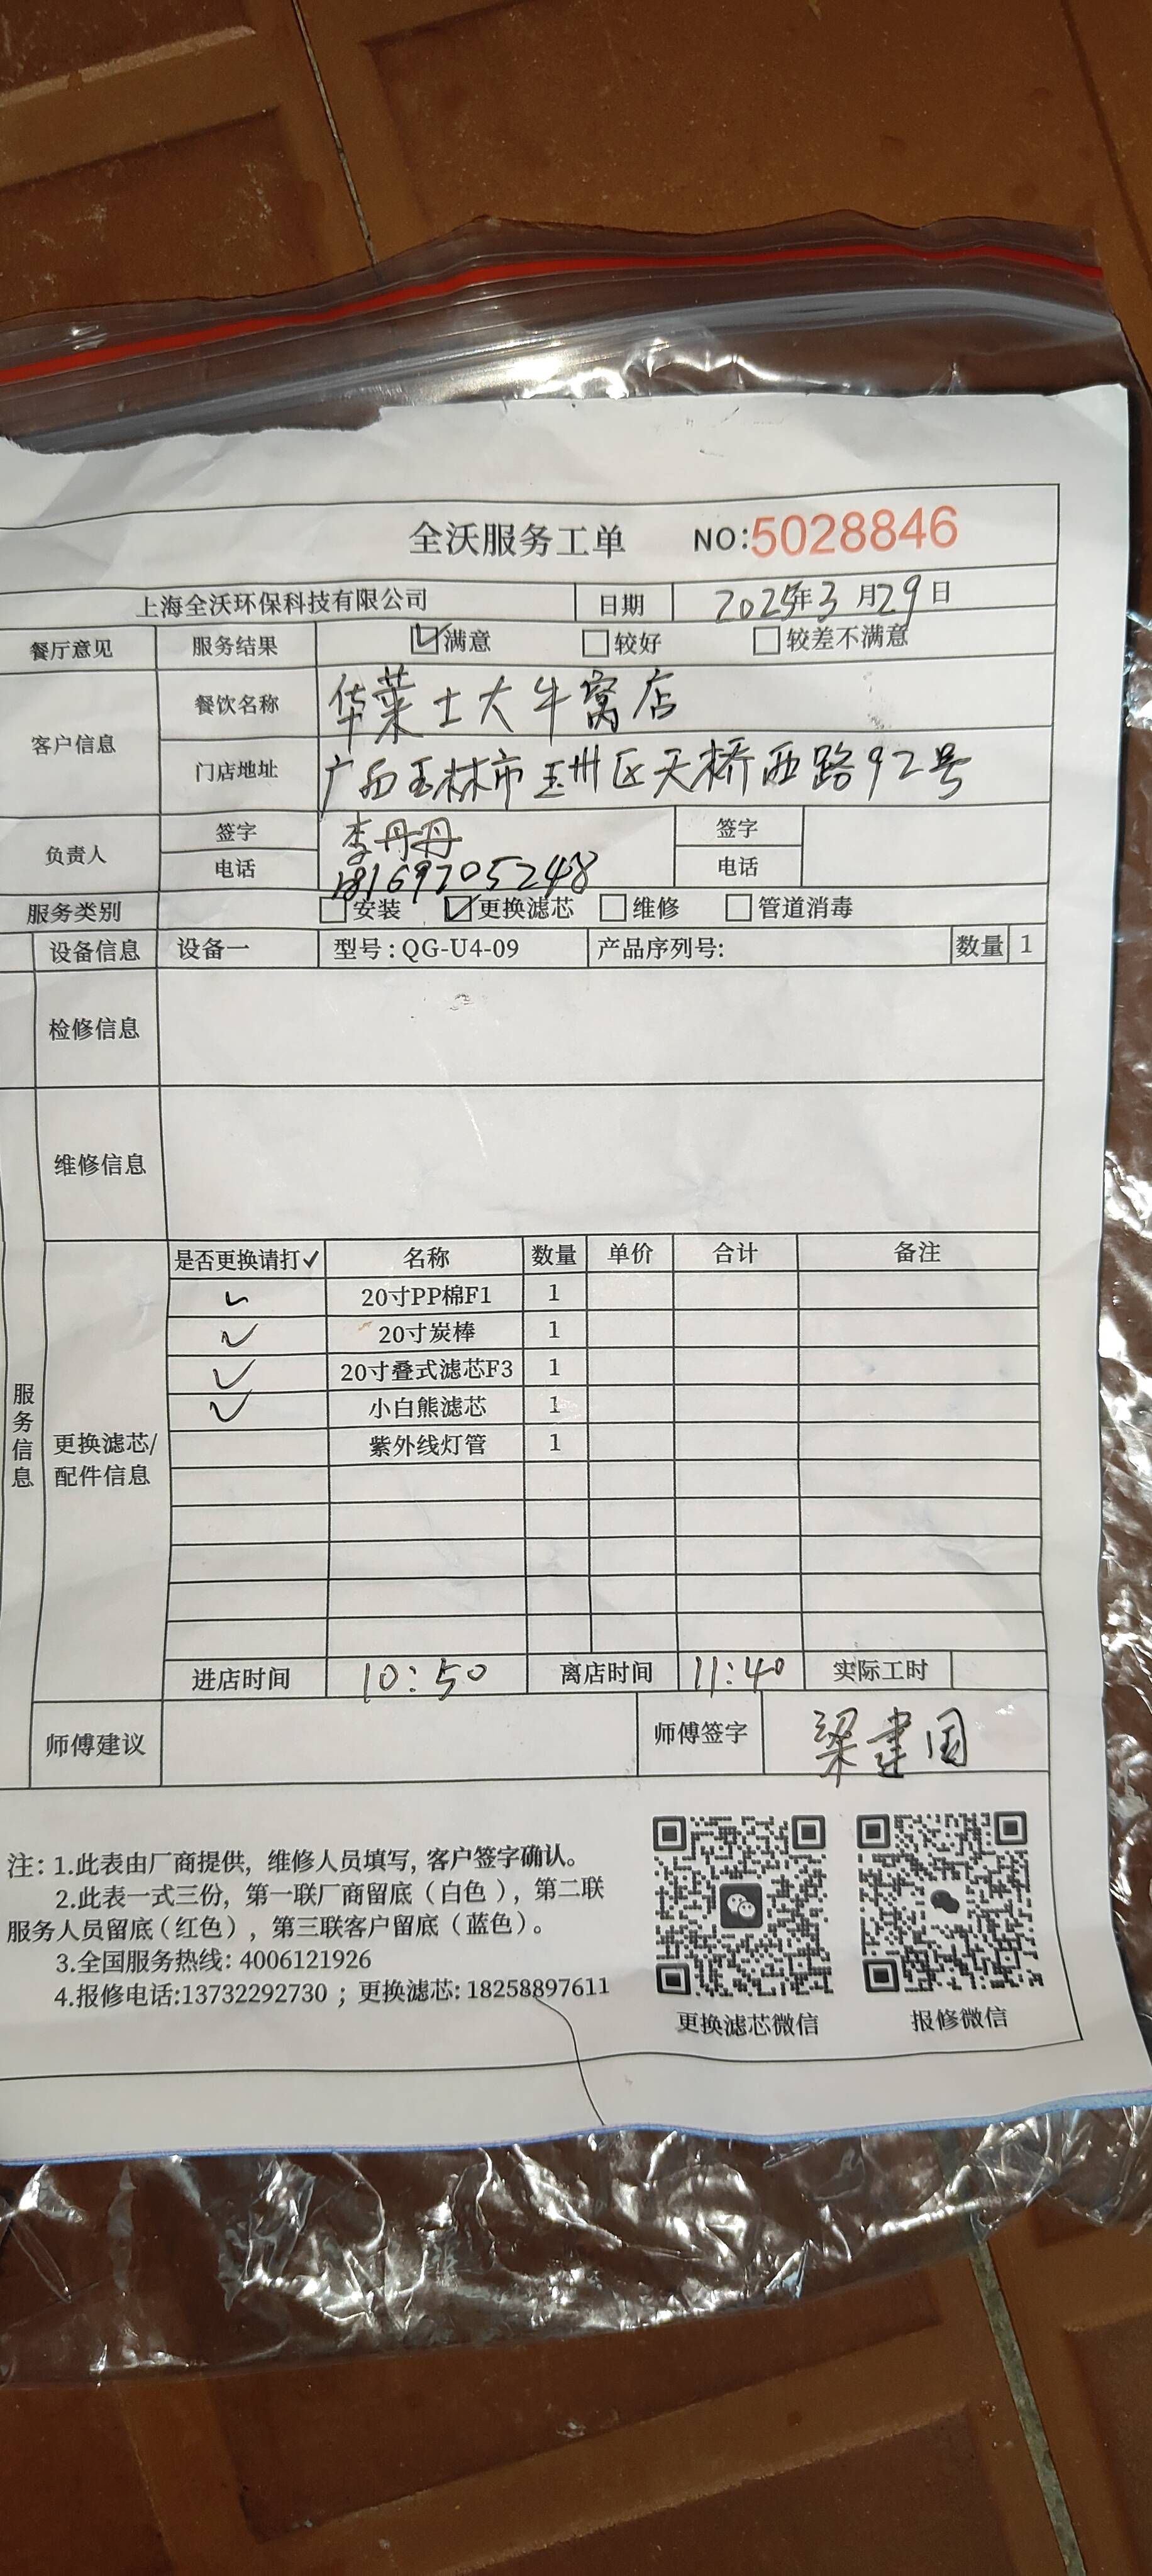 全沃服务工单 NO:5028846
上海全沃环保科技有限公司 日期 2025年3月29日
餐厅意见 服务结果 ☑满意 □较好 □较差不满意
客户信息 餐饮名称 华莱士大牛窝店
门店地址 广西玉林市玉州区天桥西路92号
负责人 签字 李丹丹 签字
电话 18169705248 电话
服务类别 □安装 ☑更换滤芯 □维修 □管道消毒
设备信息 设备一 型号:QG-U4-09 产品序列号: 数量 1
检修信息
维修信息
服务信息
更换滤芯/配件信息
是否更换请打✓ 名称 数量 单价 合计 备注
✓ 20寸PP棉F1 1
✓ 20寸炭棒 1
✓ 20寸叠式滤芯F3 1
✓ 小白熊滤芯 1
紫外线灯管 1
进店时间 10:50 离店时间 11:40 实际工时
师傅建议 师傅签字 梁建国
注:1.此表由厂商提供,维修人员填写,客户签字确认。
2.此表一式三份,第一联厂商留底(白色),第二联
服务人员留底(红色),第三联客户留底(蓝色)。
3.全国服务热线:4006121926
4.报修电话:13732292730;更换滤芯:18258897611
更换滤芯微信 报修微信